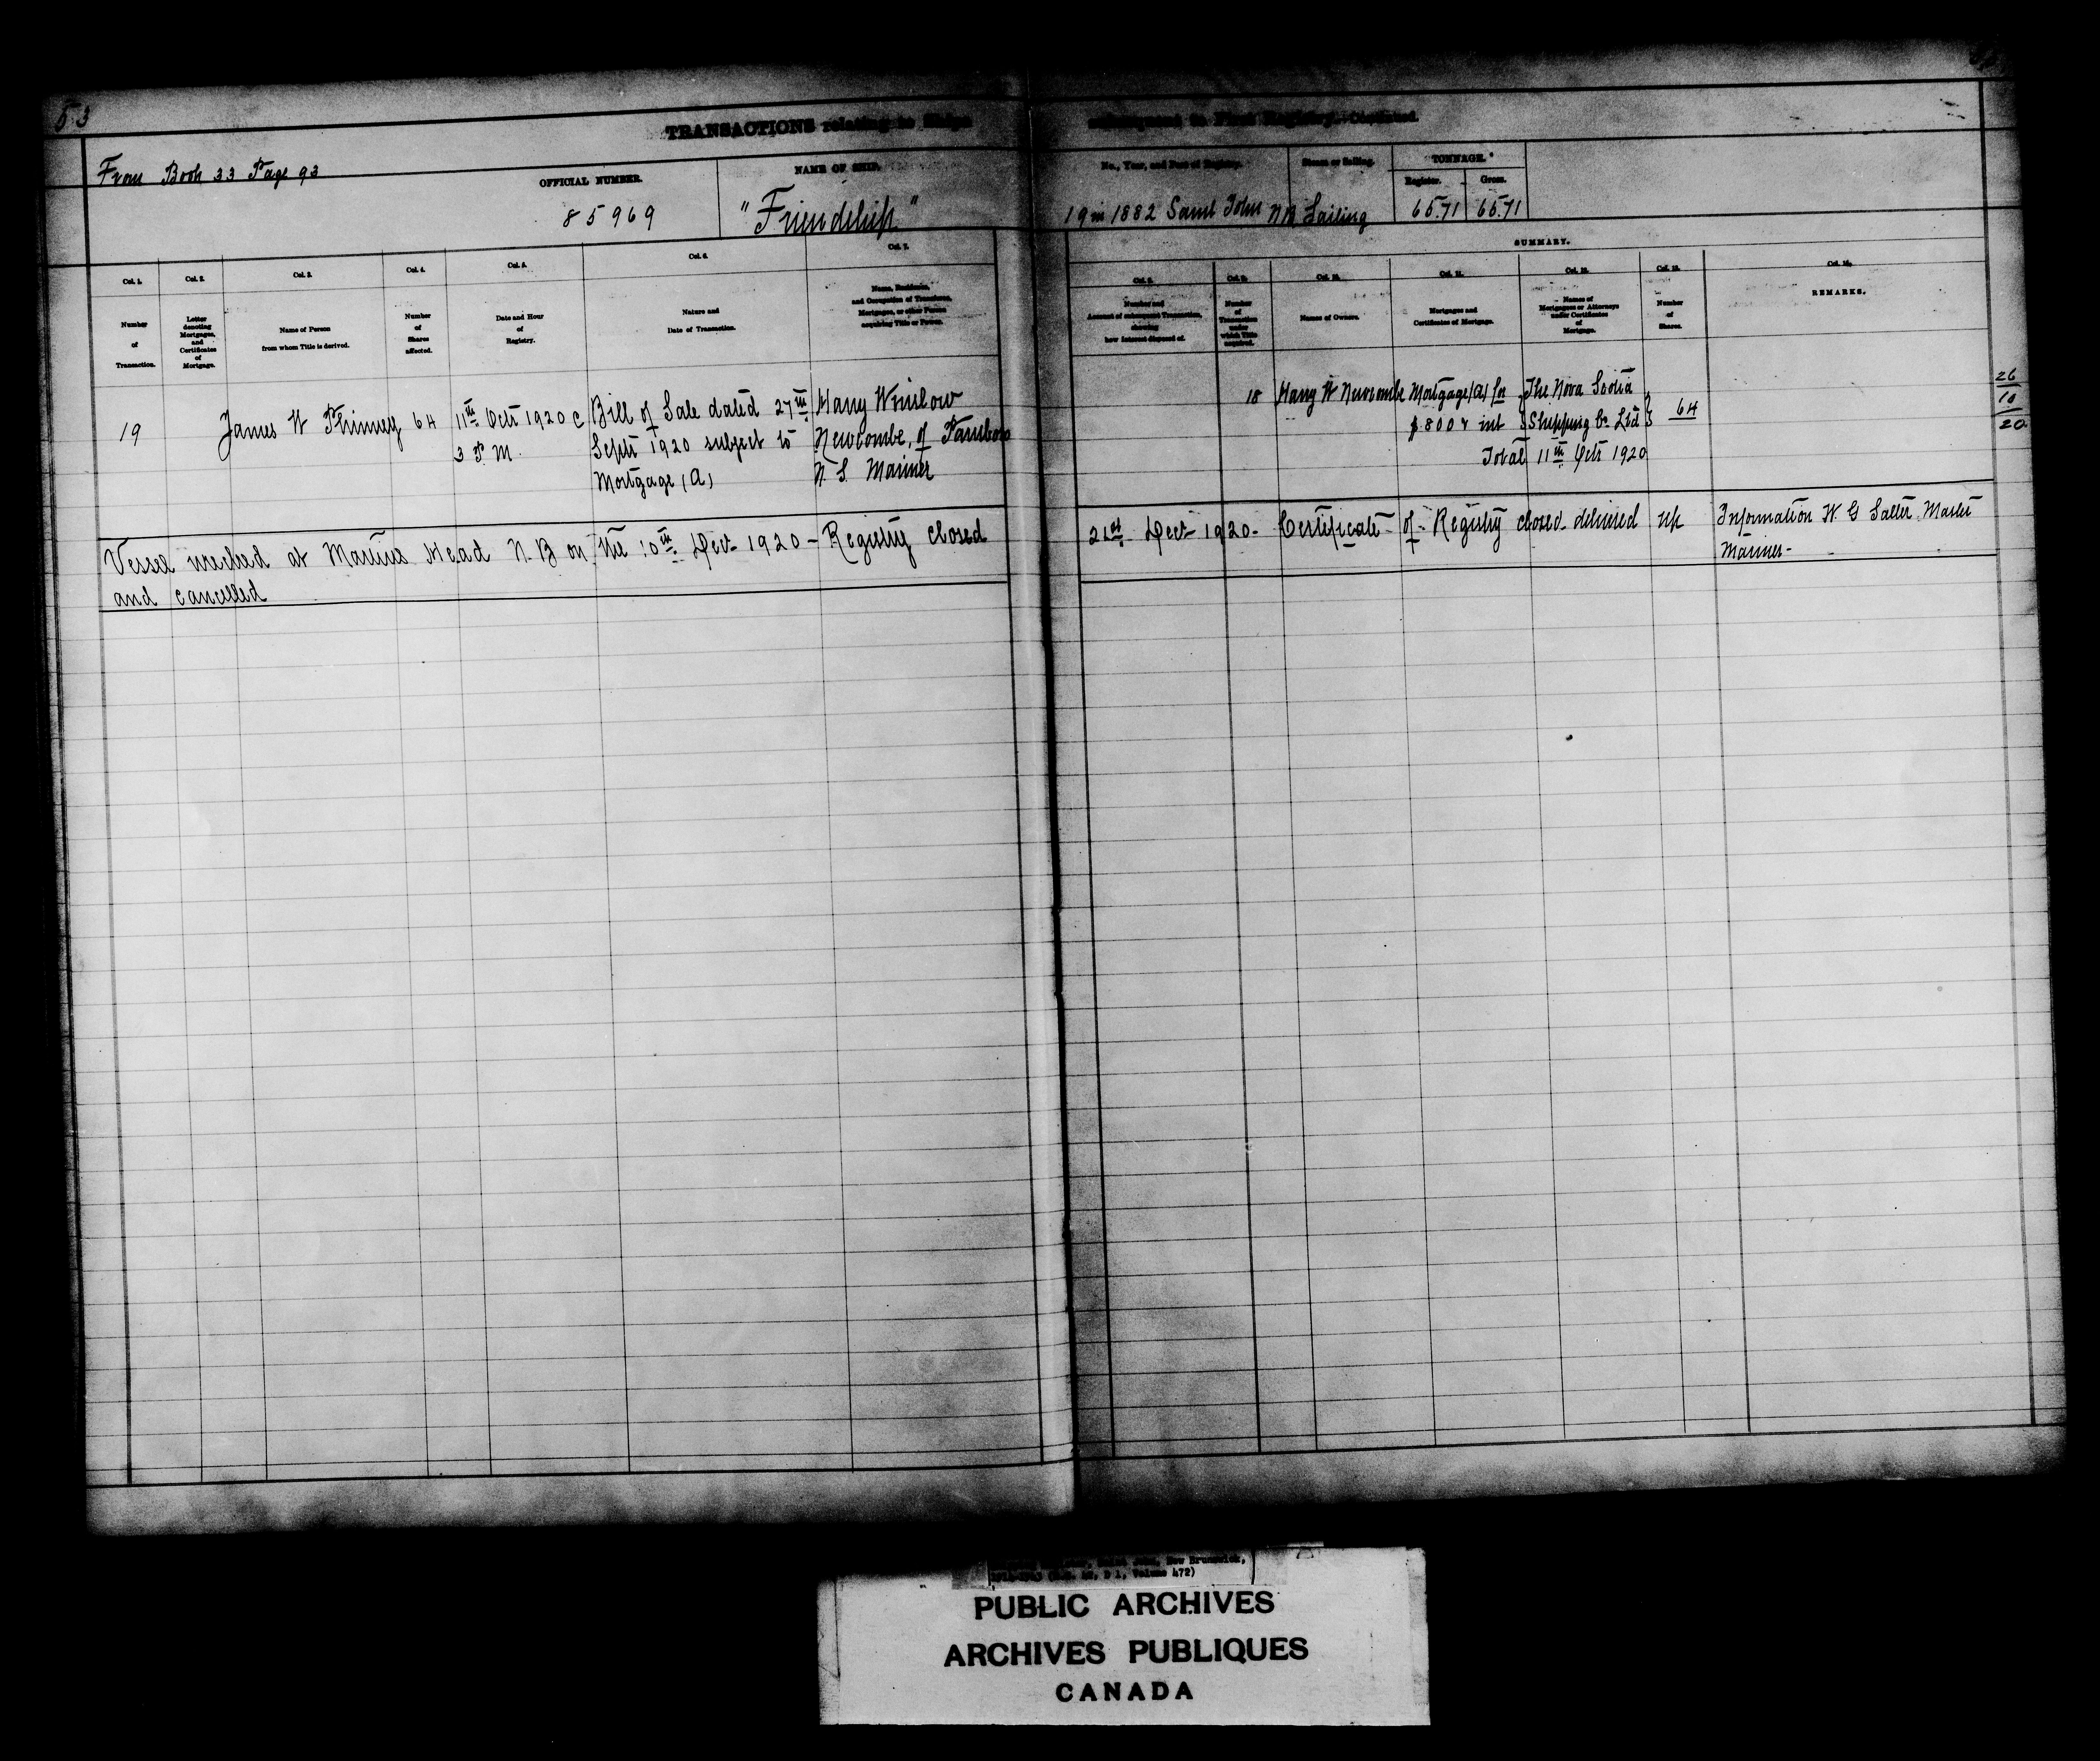 53
TRANSACTIONS relating to Ships subsequent to First Registry.
From Book 33 Page 93
OFFICIAL NUMBER.
85969
NAME OF SHIP.
"Friendship"
No., Year, and Port of Registry.
19 in 1882 Saint John NB
Steam or Sailing.
Sailing
TONNAGE.
Register.
Gross.
65.71
65.71
SUMMARY.
Col. 1.
Number
of
Transaction.
Col. 2.
Letter
denoting
Mortgages,
and
Certificates
of
Mortgage.
Col. 3.
Name of Person
from whom Title is derived.
Col. 4.
Number
of
Shares
affected.
Col. 5.
Date and Hour
of
Registry.
Col. 6.
Nature and
Date of Transaction.
Col. 7.
Name, Residence,
and Occupation of Transferee,
Mortgagee, or other Person
acquiring Title or Power.
Col. 8.
Number and
Amount of subsequent Transaction,
showing
how Interest disposed of.
Col. 9.
Number
of
Transaction
under
which Title
acquired.
Col. 10.
Names of Owners.
Col. 11.
Mortgages and
Certificates of Mortgage.
Col. 12.
Names of
Mortgagees or Attorneys
under Certificates
of
Mortgage.
Col. 13.
Number
of
Shares.
Col. 14.
REMARKS.
19
James W Phinney
64
11th Octr 1920 @
3 P M
Bill of Sale dated 27th
Septr 1920 subject to
Mortgage (A)
Harry Winslow
Newcombe, of Parrsboro
N. S. Mariner
18
Harry W Newcombe
Mortgage (A) for
$800 & int
The Nova Scotia
Shipping Co Ltd
64
Total 11th Octr 1920
26
10
20
Vessel wrecked at Martins Head N.B on the 10th Decr 1920 - Registry closed 21st Decr 1920 - Certificate of Registry closed delivered up
and cancelled
Information W. G Salter Master
Mariner -
New Brunswick,
D 1, Volume 472)
PUBLIC ARCHIVES
ARCHIVES PUBLIQUES
CANADA